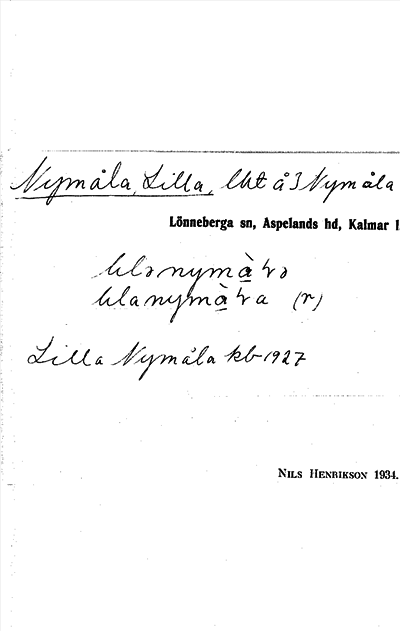 Nymåla, Lilla, lht å 3 Nymåla
Lönneberga sn, Aspelands hd, Kalmar l
(r)
Lilla Nymåla kb 1927
NILS HENRIKSON 1934.